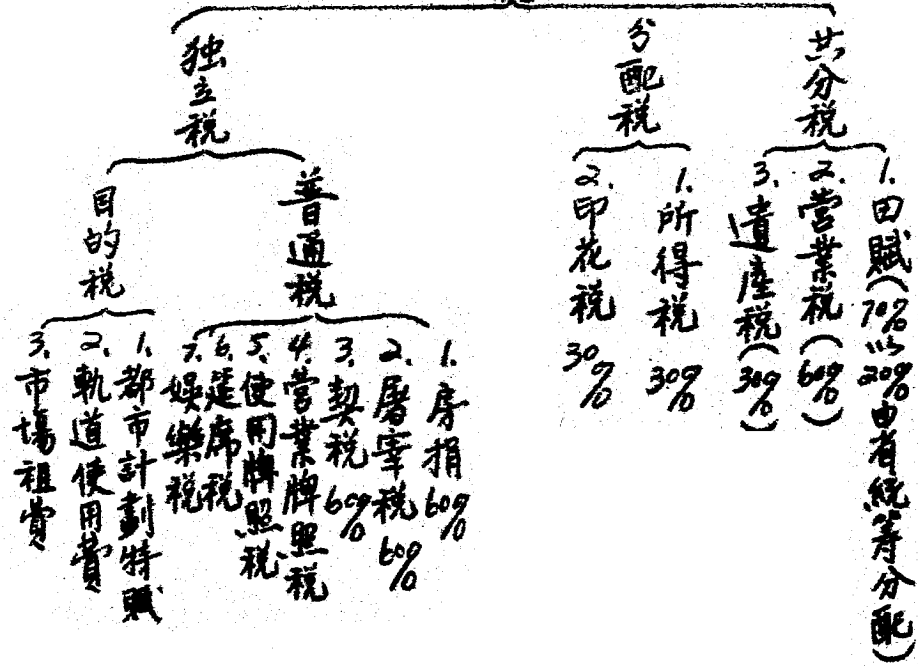 共分税
1.田賦(70%內20%由省統筹分配)
2.营業税(60%)
3.遺產税(30%)
分配税
1.所得税30%
2.印花税30%
独立税
普通税
1.房捐60%
2.屠宰税60%
3.契税60%
4.营業牌照税
5.使用牌照税
6.筵席税
7.娛樂税
目的税
1.都市計劃特賦
2.軌道使用費
3.市場租費